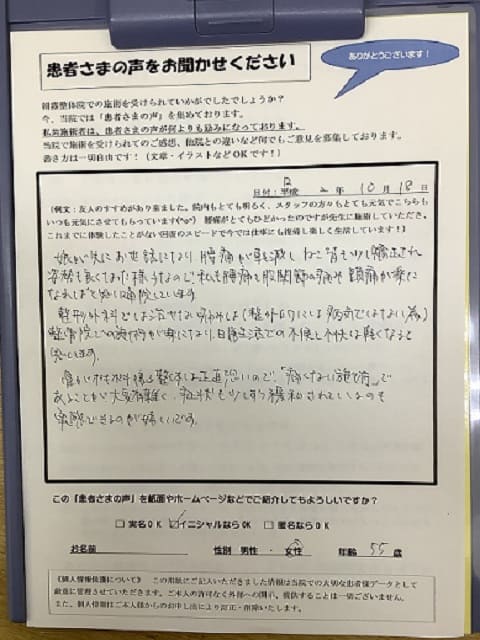 患者さまの声をお聞かせください
ありがとうございます！
朝霞整体院での施術を受けられていかがでしたでしょうか？
今、当院では「患者さまの声」を集めております。
私共施術者は、患者さまの声が何よりも励みになっております。
当院で施術を受けられてのご感想、他院との違いなど何でもご意見を募集しております。
書き方は一切自由です！（文章・イラストなどOKです！）
日付：平成 2 年 10 月 18 日
（例文：友人のすすめがあり来ました。院内もとても明るく、スタッフの方々もとても元気でこちらも
いつも元気にさせてもらっています(^o^) 腰痛がとてもひどかったのですが先生に施術していただき、
これまでに体験したことがない回復のスピードで今では仕事にも復帰し楽しく生活しています！）
娘が先にお世話になり腰痛が軽減し ねこ背も少し矯正され
姿勢も良くなった様子なので、私も腰痛と股関節の痛みや頭痛が楽に
なればと思い通院しています。
整形外科では治せない痛みは（整形的には病気ではない為）
整体院での施術が楽になり、日常生活での不便と不快は軽くなると
思います。
痛い 整体は正直 恐いので、「痛くない施術」で
あることが大変有難く、症状も少しずつ緩和されているのも
実感できるのが嬉しいです。
この「患者さまの声」を紙面やホームページなどでご紹介してもよろしいですか？
□実名OK ☑イニシャルならOK □匿名ならOK
お名前 性別 男性・女性 年齢 55 歳
《個人情報保護について》 この用紙にご記入いただきました情報は当院での大切な患者様データとして
厳重に管理させていただきます。ご本人の許可なく外部への開示、提供することは一切ございません。
また、個人情報はご本人様からのお申し出により訂正・削除いたします。